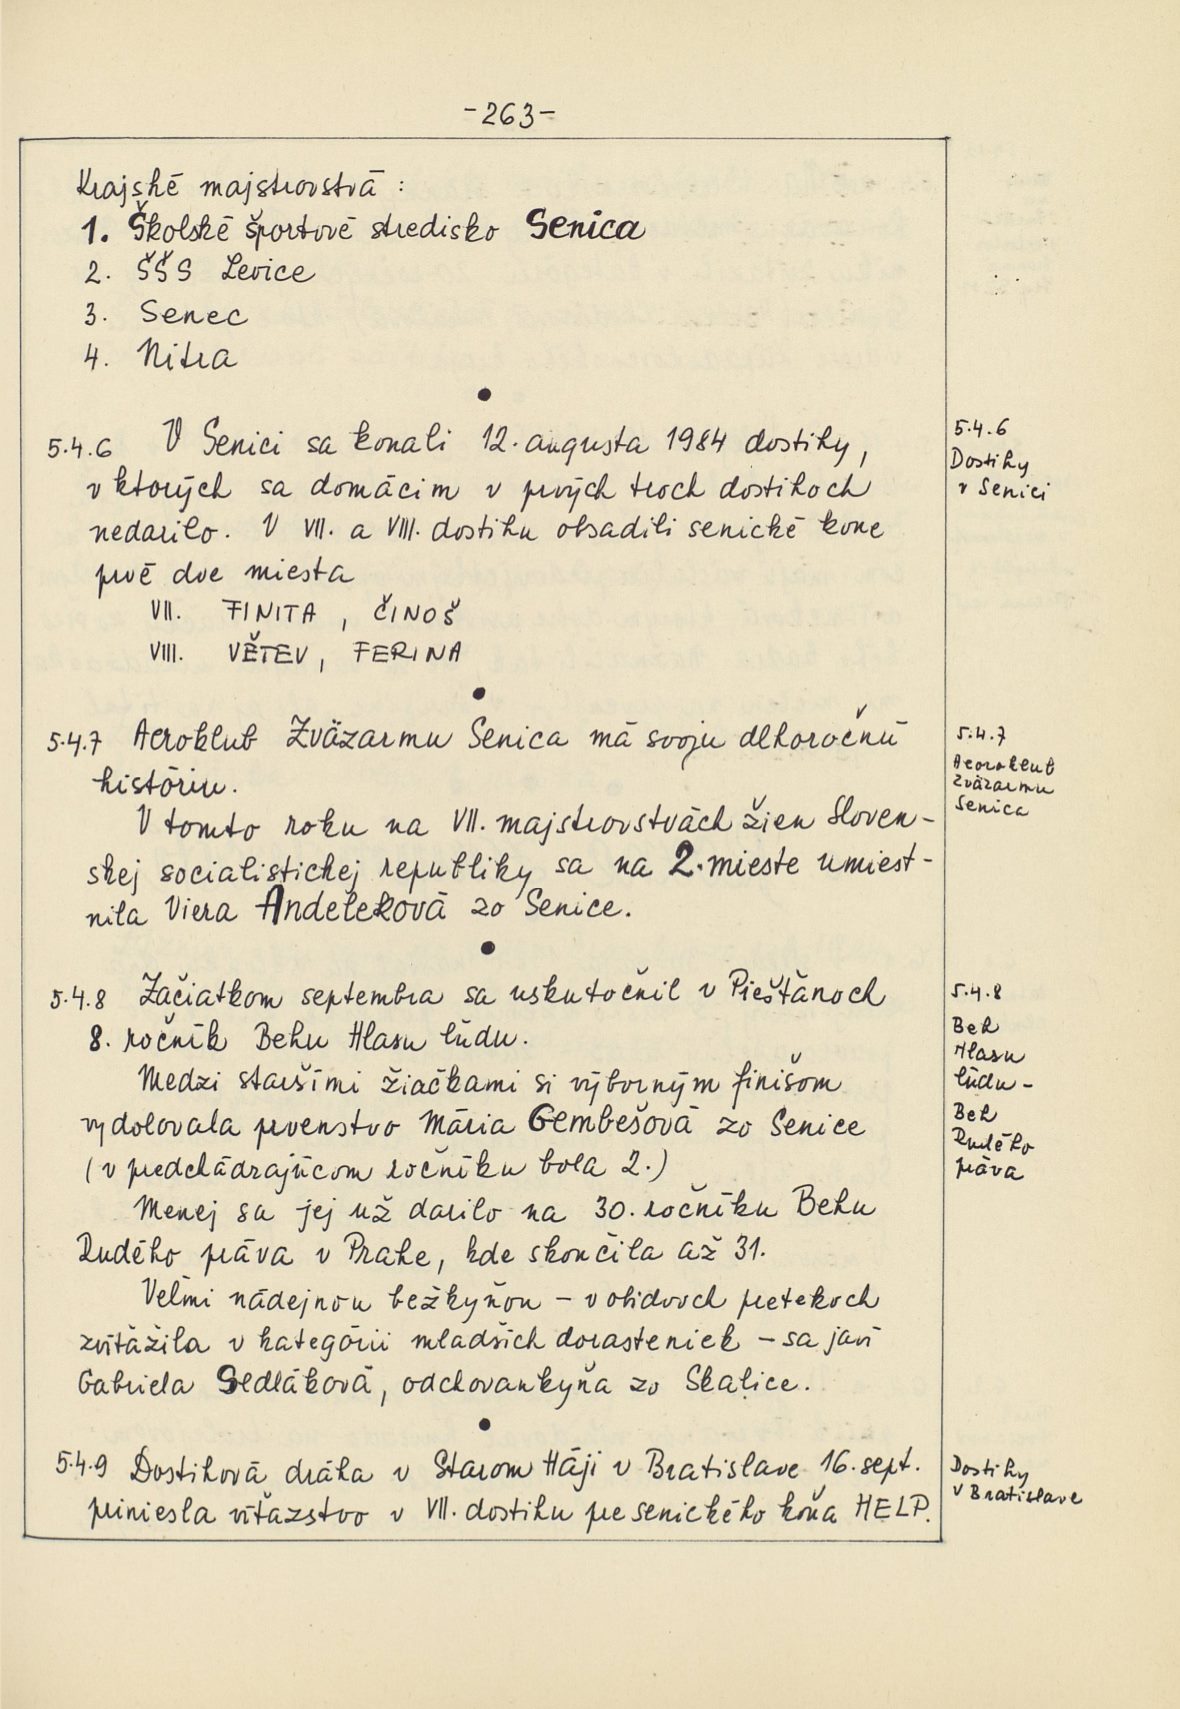 -263-
Krajské majstrovstvá :
1. Školské športové stredisko Senica
2. ŠŠS Levice
3. Senec
4. Nitra
5.4.6 V Senici sa konali 12. augusta 1984 dostihy,
v ktorých sa domácim v prvých troch dostihoch
nedarilo. V VII. a VIII. dostihu obsadili senické kone
prvé dve miesta
VII. FINITA, ČINOŠ
VIII. VĚTEV, FERINA
5.4.6
Dostihy
v Senici
5.4.7 Aeroklub Zväzarmu Senica má svoju dlhoročnú
históriu.
V tomto roku na VII. majstrovstvách žien Sloven-
skej socialistickej republiky sa na 2. mieste umiest-
nila Viera Andeleková zo Senice.
5.4.7
Aeroklub
Zväzarmu
Senica
5.4.8 Začiatkom septembra sa uskutočnil v Piešťanoch
8. ročník Behu Hlasu ľudu.
Medzi staršími žiačkami si výborným finišom
vydolovala prvenstvo Mária Gembešová zo Senice
(v predchádzajúcom ročníku bola 2.)
Menej sa jej už darilo na 30. ročníku Behu
Rudého práva v Prahe, kde skončila až 31.
Veľmi nádejnou bežkyňou - v obidvoch pretekoch
zvíťažila v kategórii mladších dorasteniek - sa javí
Gabriela Sedláková, odchovankyňa zo Skalice.
5.4.8
Beh
Hlasu
ľudu -
Beh
Rudého
práva
5.4.9 Dostihová dráha v Starom Háji v Bratislave 16. sept.
priniesla víťazstvo v VII. dostihu pre senického koňa HELP.
Dostihy
v Bratislave